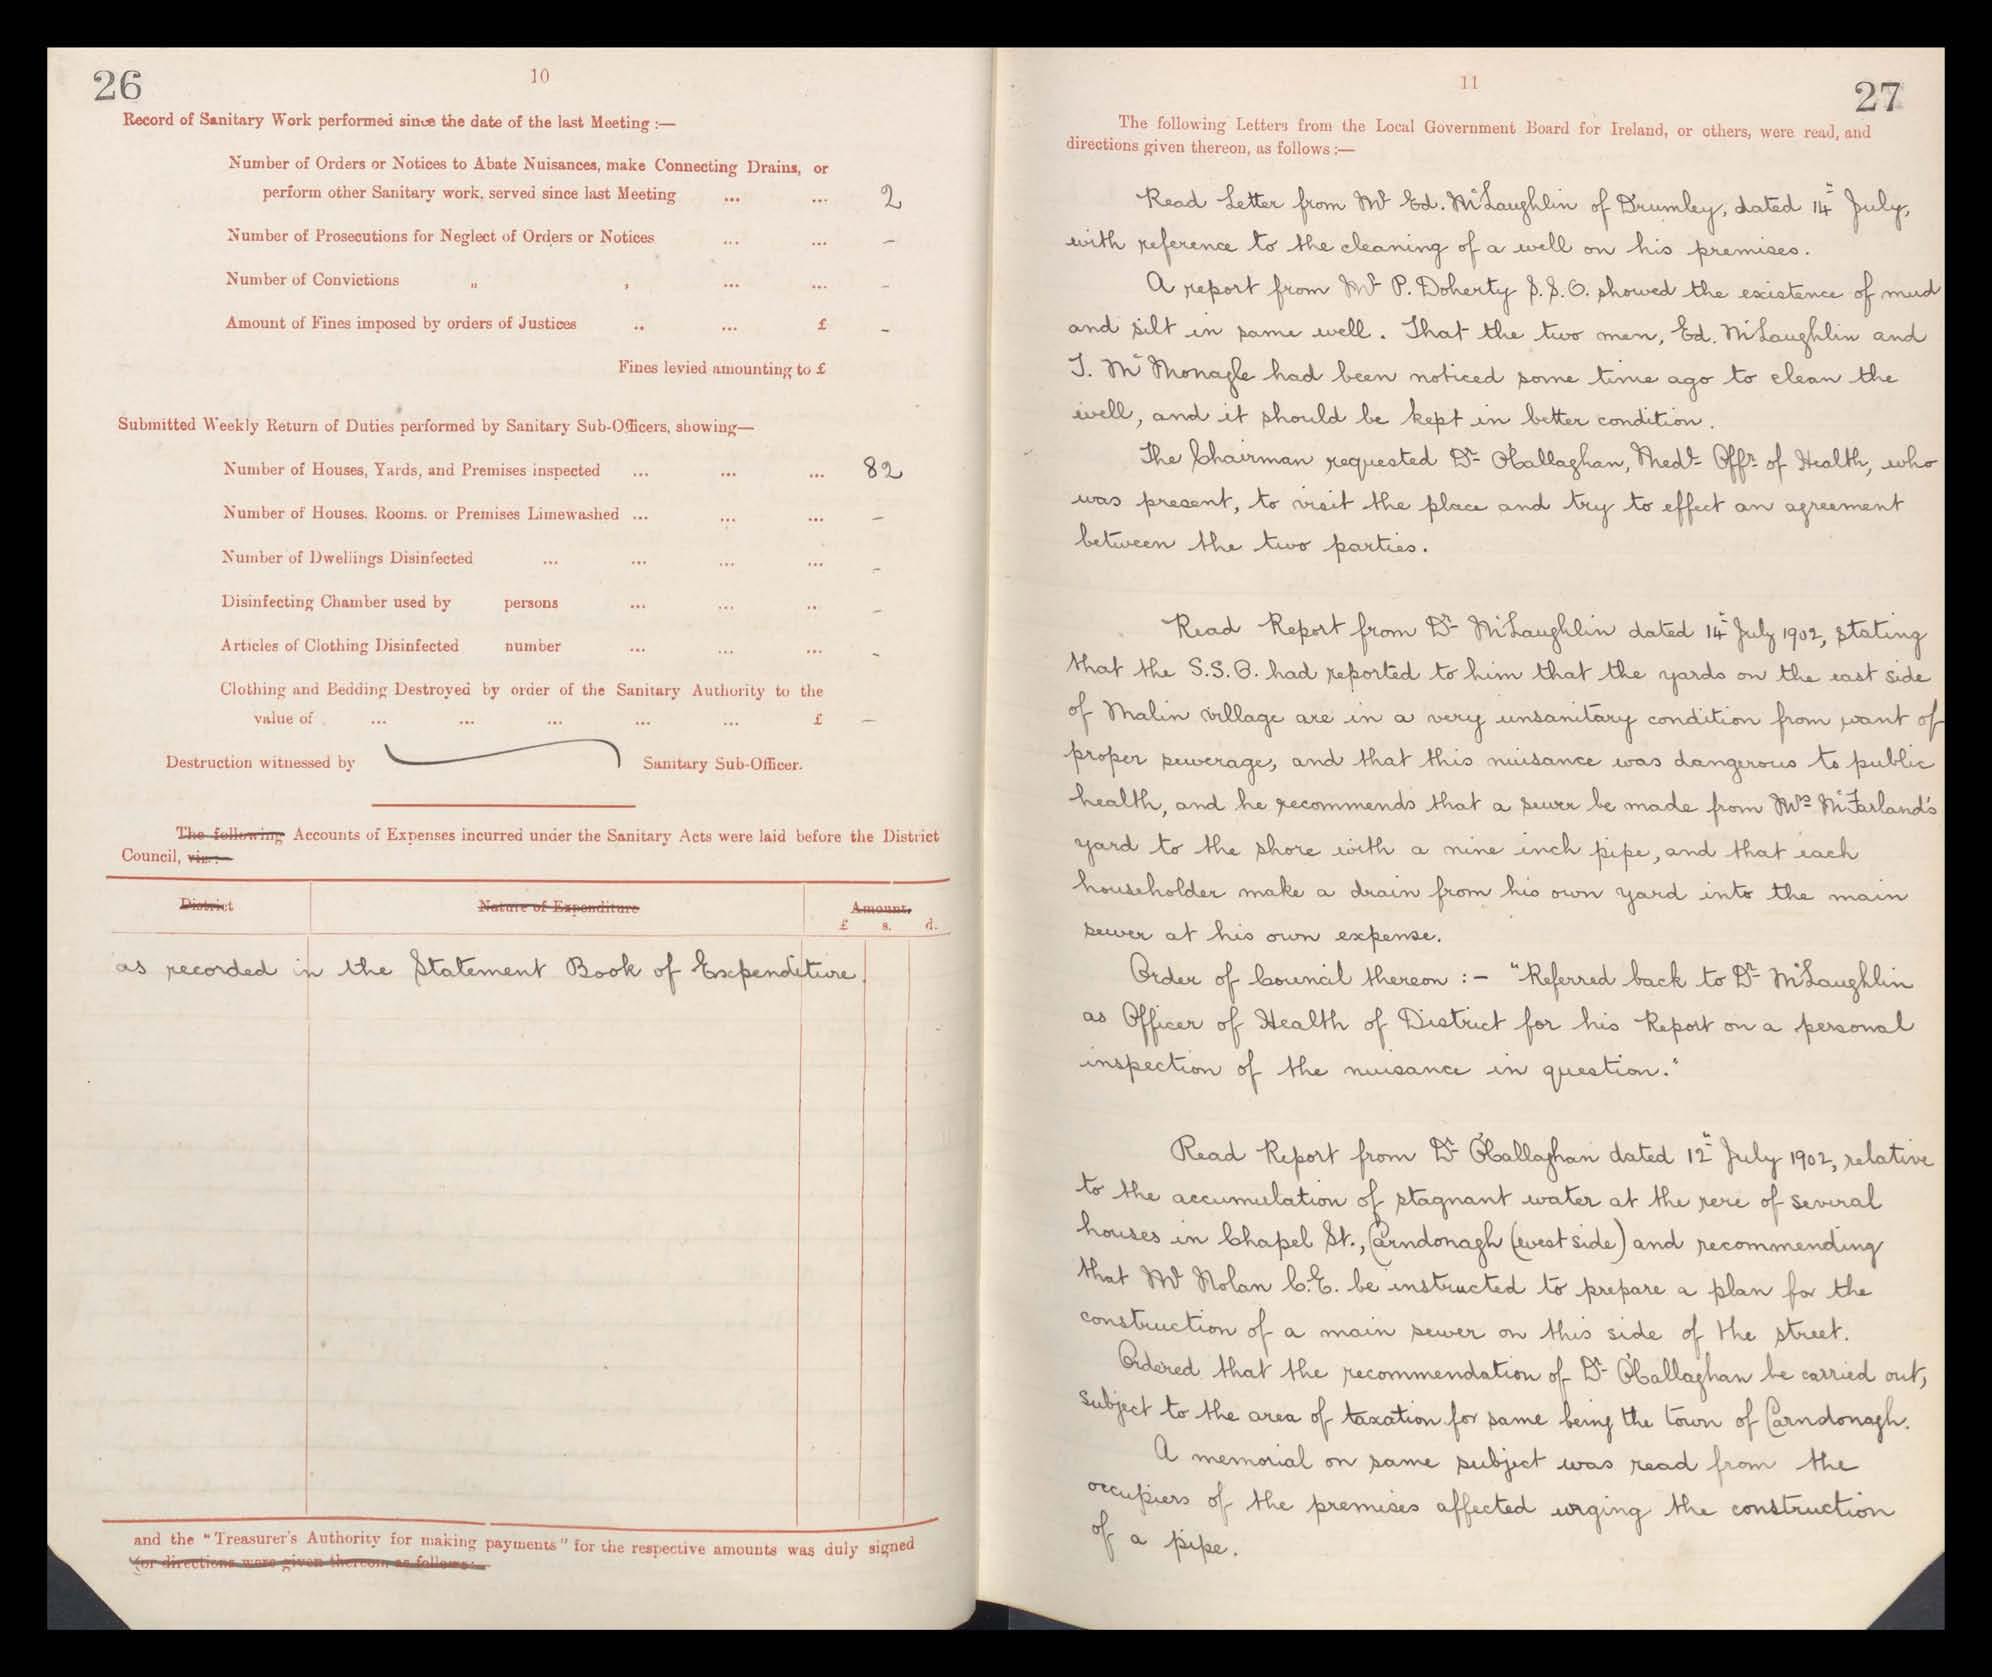 26
10
Record of Sanitary Work performed since the date of the last Meeting :—
Number of Orders or Notices to Abate Nuisances, make Connecting Drains, or
perform other Sanitary work, served since last Meeting ... ... 2
Number of Prosecutions for Neglect of Orders or Notices ... ... –
Number of Convictions „ , ... ... –
Amount of Fines imposed by orders of Justices .. ... £ –
Fines levied amounting to £
Submitted Weekly Return of Duties performed by Sanitary Sub-Officers, showing—
Number of Houses, Yards, and Premises inspected ... ... ... 82
Number of Houses, Rooms, or Premises Limewashed ... ... ... –
Number of Dwellings Disinfected ... ... ... ... –
Disinfecting Chamber used by persons ... ... .. –
Articles of Clothing Disinfected number ... ... ... –
Clothing and Bedding Destroyed by order of the Sanitary Authority to the
value of ... ... ... ... ... £ –
Destruction witnessed by Sanitary Sub-Officer.
The following Accounts of Expenses incurred under the Sanitary Acts were laid before the District
Council, viz.:—
District Nature of Expenditure Amount.
£ s. d.
as recorded in the Statement Book of Expenditure.
and the "Treasurer's Authority for making payments" for the respective amounts was duly signed
(or directions were given thereon as follows:—
11
27
The following Letters from the Local Government Board for Ireland, or others, were read, and
directions given thereon, as follows :—
Read Letter from Mr Ed. McLaughlin of Drumley, dated 14" July,
with reference to the cleaning of a well on his premises.
A report from Mr P. Doherty S.S.O. showed the existence of mud
and silt in same well. That the two men, Ed. McLaughlin and
T. McMonagle had been noticed some time ago to clean the
well, and it should be kept in better condition.
The Chairman requested Dr O'Callaghan, Medl Offr of Health, who
was present, to visit the place and try to effect an agreement
between the two parties.
Read Report from Dr McLaughlin dated 14" July 1902, stating
that the S.S.O. had reported to him that the yards on the east side
of Malin village are in a very unsanitary condition from want of
proper sewerage, and that this nuisance was dangerous to public
health, and he recommends that a sewer be made from Mrs McFarland's
yard to the shore with a nine inch pipe, and that each
householder make a drain from his own yard into the main
sewer at his own expense.
Order of Council thereon :- "Referred back to Dr McLaughlin
as Officer of Health of District for his Report on a personal
inspection of the nuisance in question."
Read Report from Dr O'Callaghan dated 12" July 1902, relative
to the accumulation of stagnant water at the rere of several
houses in Chapel St., Carndonagh (west side) and recommending
that Mr Nolan C.E. be instructed to prepare a plan for the
construction of a main sewer on this side of the street.
Ordered that the recommendation of Dr O'Callaghan be carried out,
subject to the area of taxation for same being the town of Carndonagh.
A memorial on same subject was read from the
occupiers of the premises affected urging the construction
of a pipe.